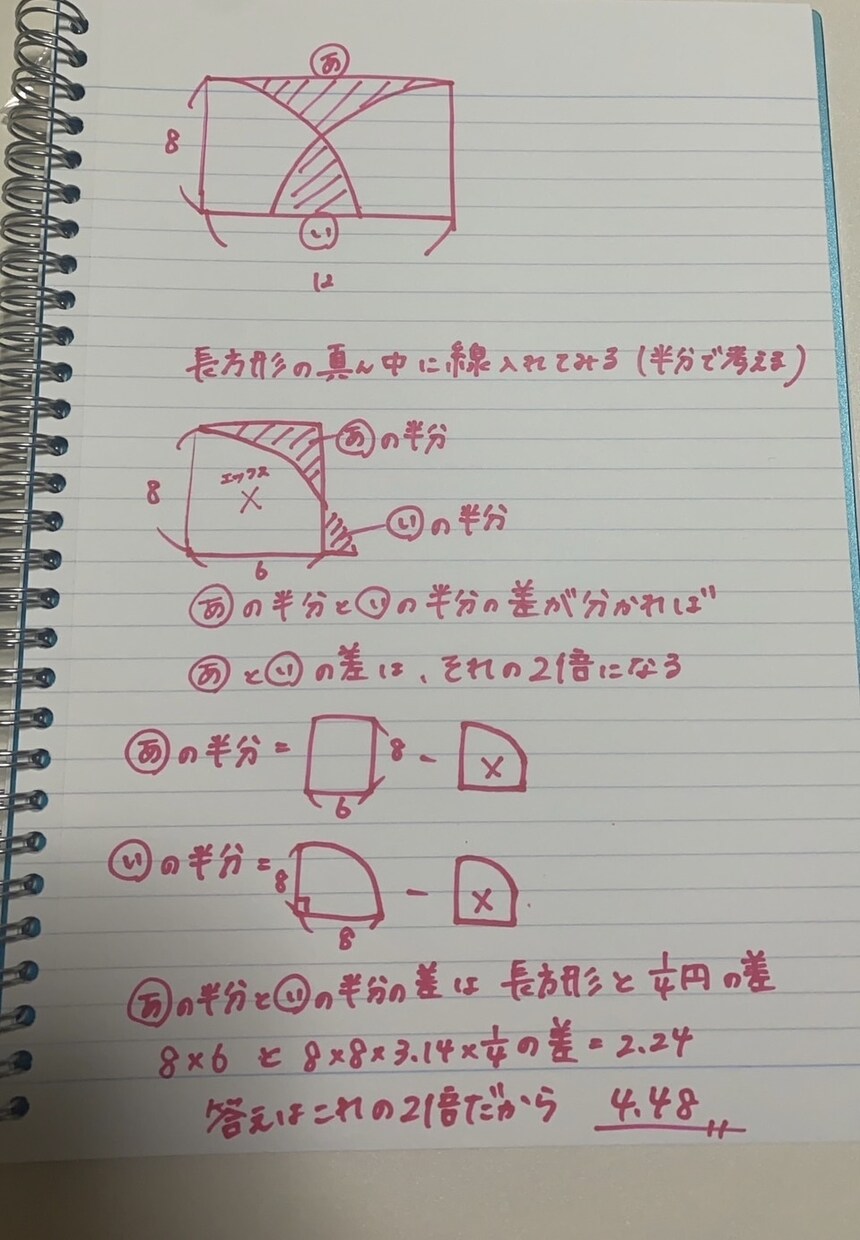 あ
8
い
12
長方形の真ん中に線入れてみる(半分で考える)
あの半分
8
エックス
X
いの半分
6
あの半分といの半分の差が分かれば
あといの差は、それの2倍になる
あの半分= 8 - X
6
いの半分= 8 - X
8
あの半分といの半分の差は長方形と1/4円の差
8×6と8×8×3.14×1/4の差=2.24
答えはこれの2倍だから 4.48